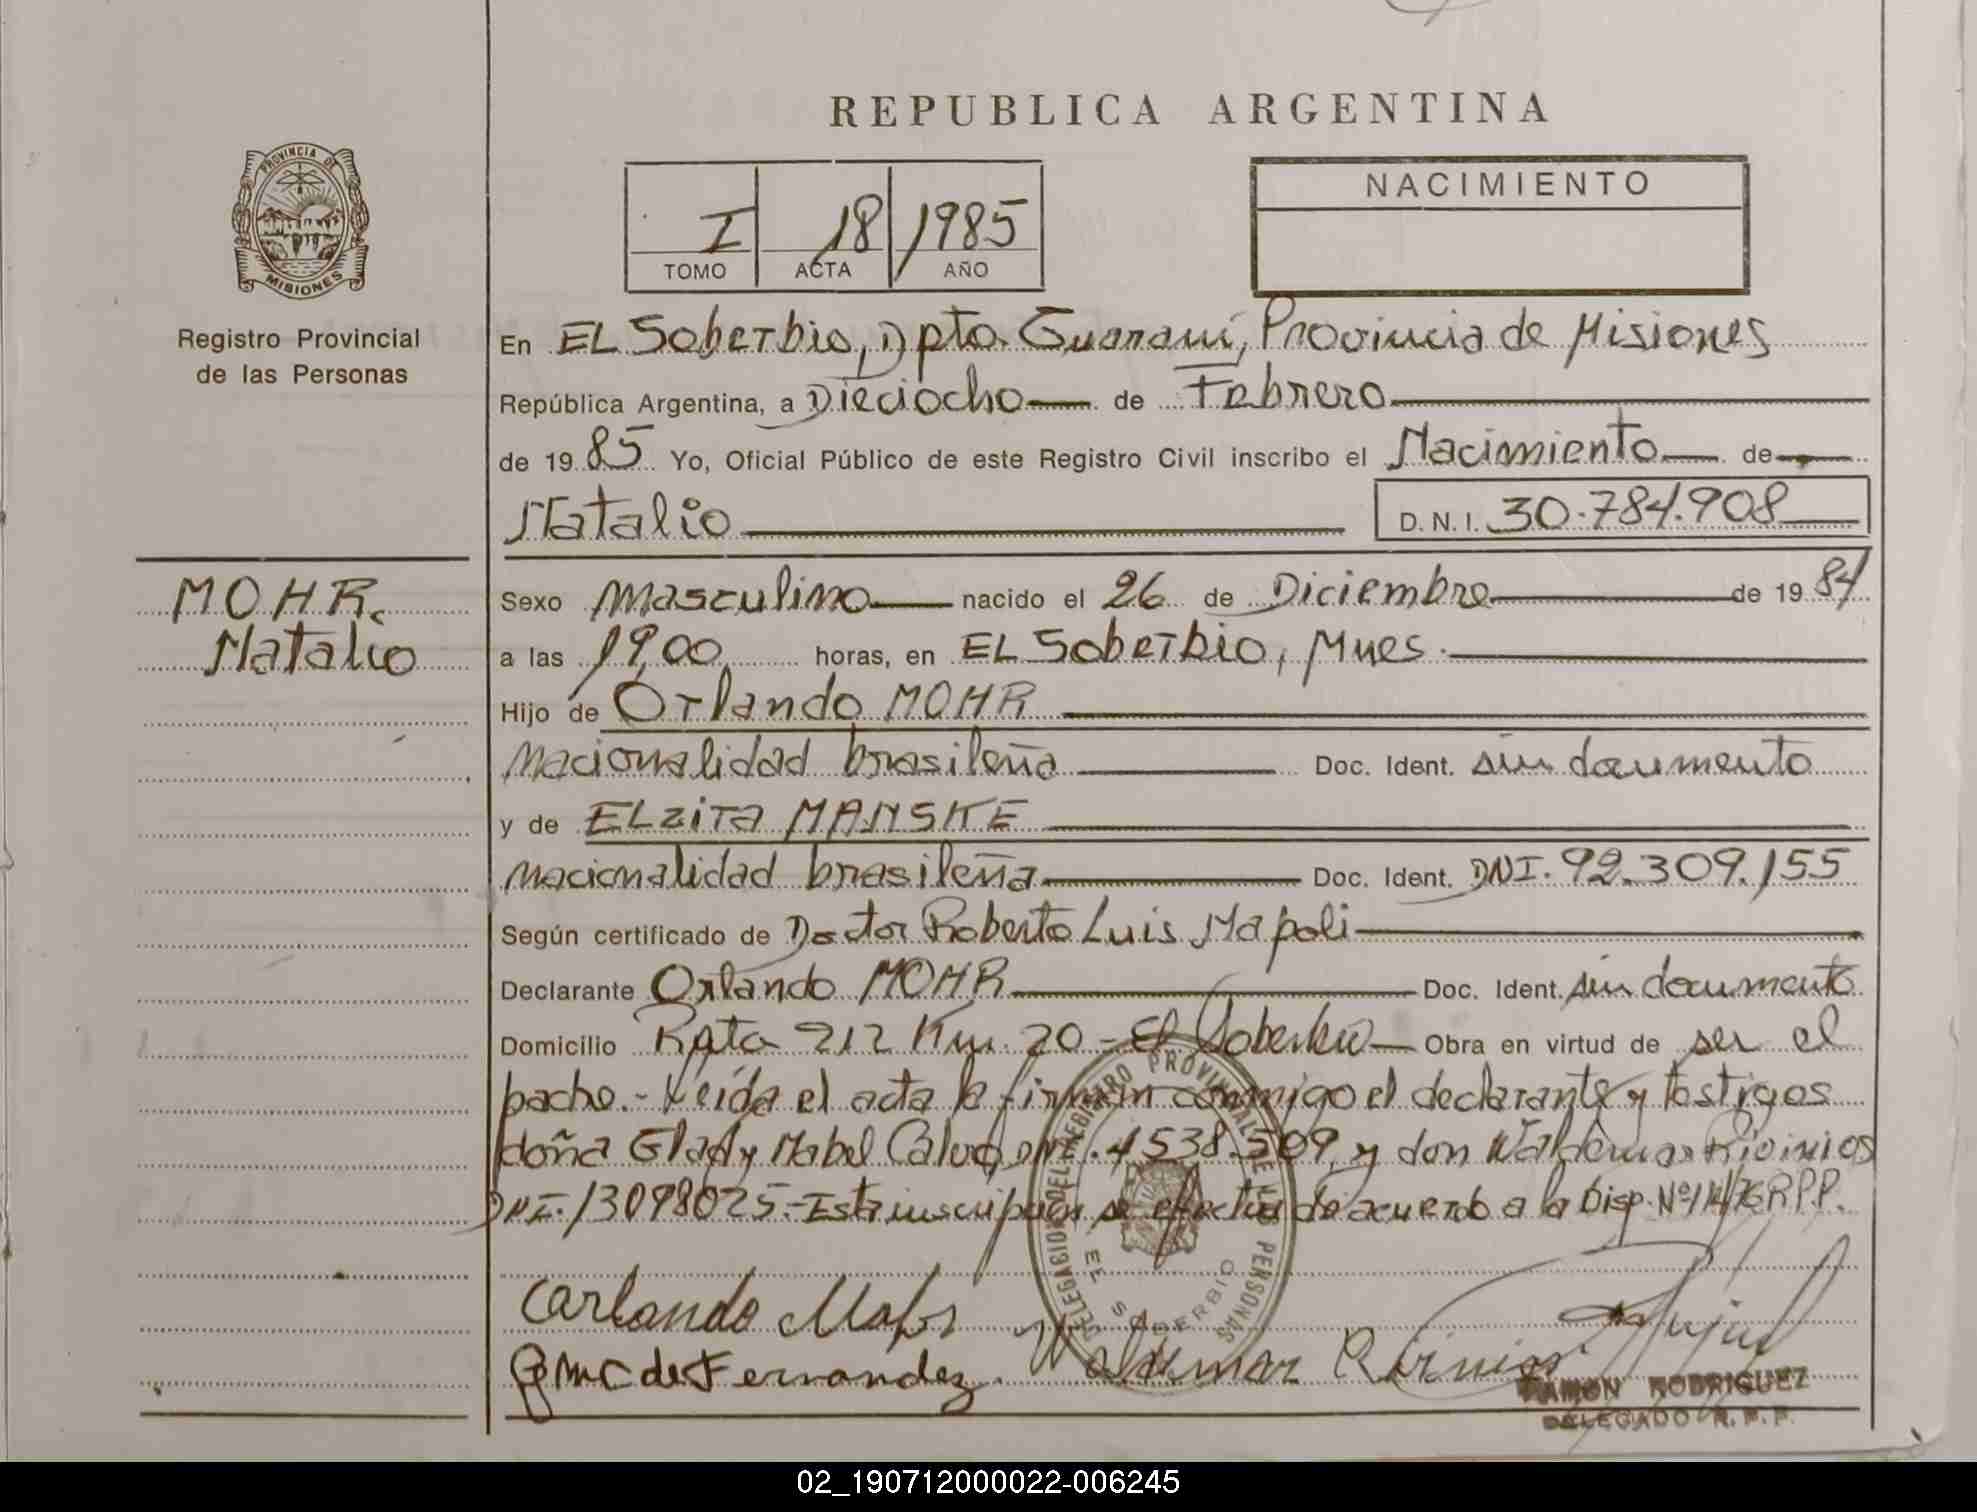 REPUBLICA ARGENTINA
PROVINCIA DE
MISIONES
Registro Provincial
de las Personas
I 18 1985
TOMO ACTA AÑO
NACIMIENTO
En EL Soberbio, Dpto. Guaraní, Provincia de Misiones
República Argentina, a Dieciocho de Febrero
de 1985 Yo, Oficial Público de este Registro Civil inscribo el Nacimiento de
Natalio D.N.I. 30.784.908
MOHR,
Natalio
Sexo Masculino nacido el 26 de Diciembre de 1984
a las 19,00 horas, en EL Soberbio, Mnes.
Hijo de Orlando MOHR
nacionalidad brasileña Doc. Ident. sin documento
y de ELzita MANSKE
nacionalidad brasileña Doc. Ident. DNI. 92.309.155
Según certificado de Doctor Roberto Luis Napoli
Declarante Orlando MOHR Doc. Ident. sin documento
Domicilio Ruta 212 Km. 20 - El Soberbio Obra en virtud de ser el
padre.- Leída el acta la firman conmigo el declarante y testigos
doña Glady Mabel Calvo, .4538.509, y don Waldemar
DNI. 13098025.- Esta inscripción se efectúa de acuerdo a la Disp. Nº 114/76 R.P.P.
DELEGACION DEL REGISTRO PROVINCIAL DE LAS PERSONAS
EL SOBERBIO
Carlando Mohr
GMC de Fernandez. Waldemar
RAMON RODRIGUEZ
DELEGADO R.P.P.
02_190712000022-006245